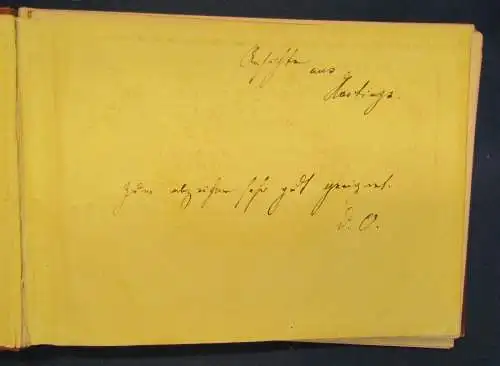 Ansichten
aus
Hastings.
Zum abzeichnen sehr gut geeignet.
d. O.